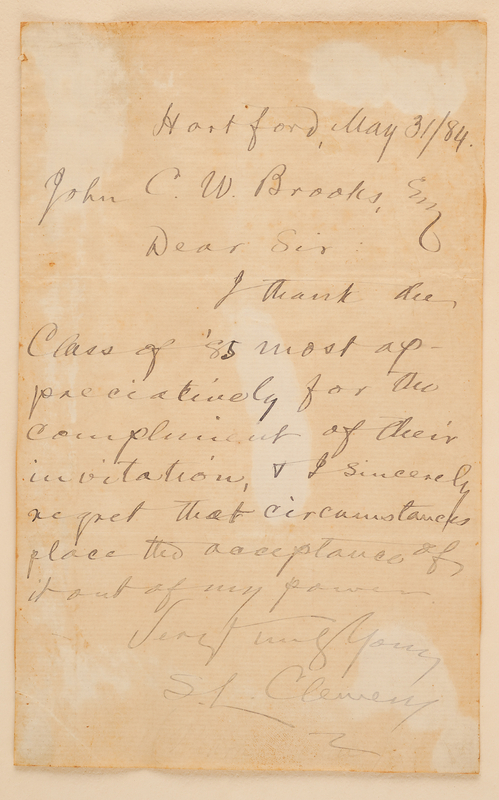 Hartford, May 31/84.
John C. W. Brooks, Esq
Dear Sir:
I thank the
Class of '85 most ap-
preciatively for the
compliment of their
invitation, & I sincerely
regret that circumstances
place the acceptance of
it out of my power.
Very truly Yours
S. L. Clemens